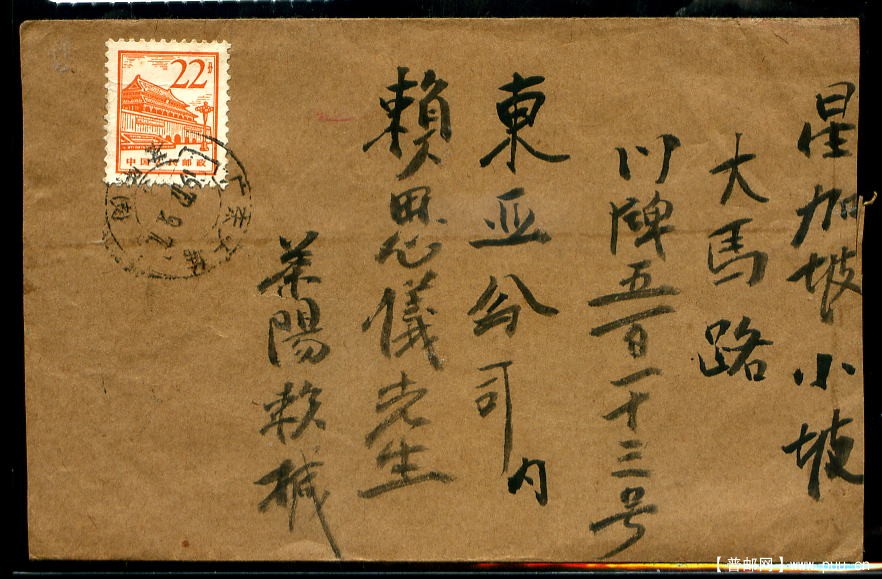 星加坡小坡
大馬路
门牌五百一十三号
東亚公司内
賴思儀先生
英陽赖械
22分
中国人民邮政
【普邮网】www.puu.cn